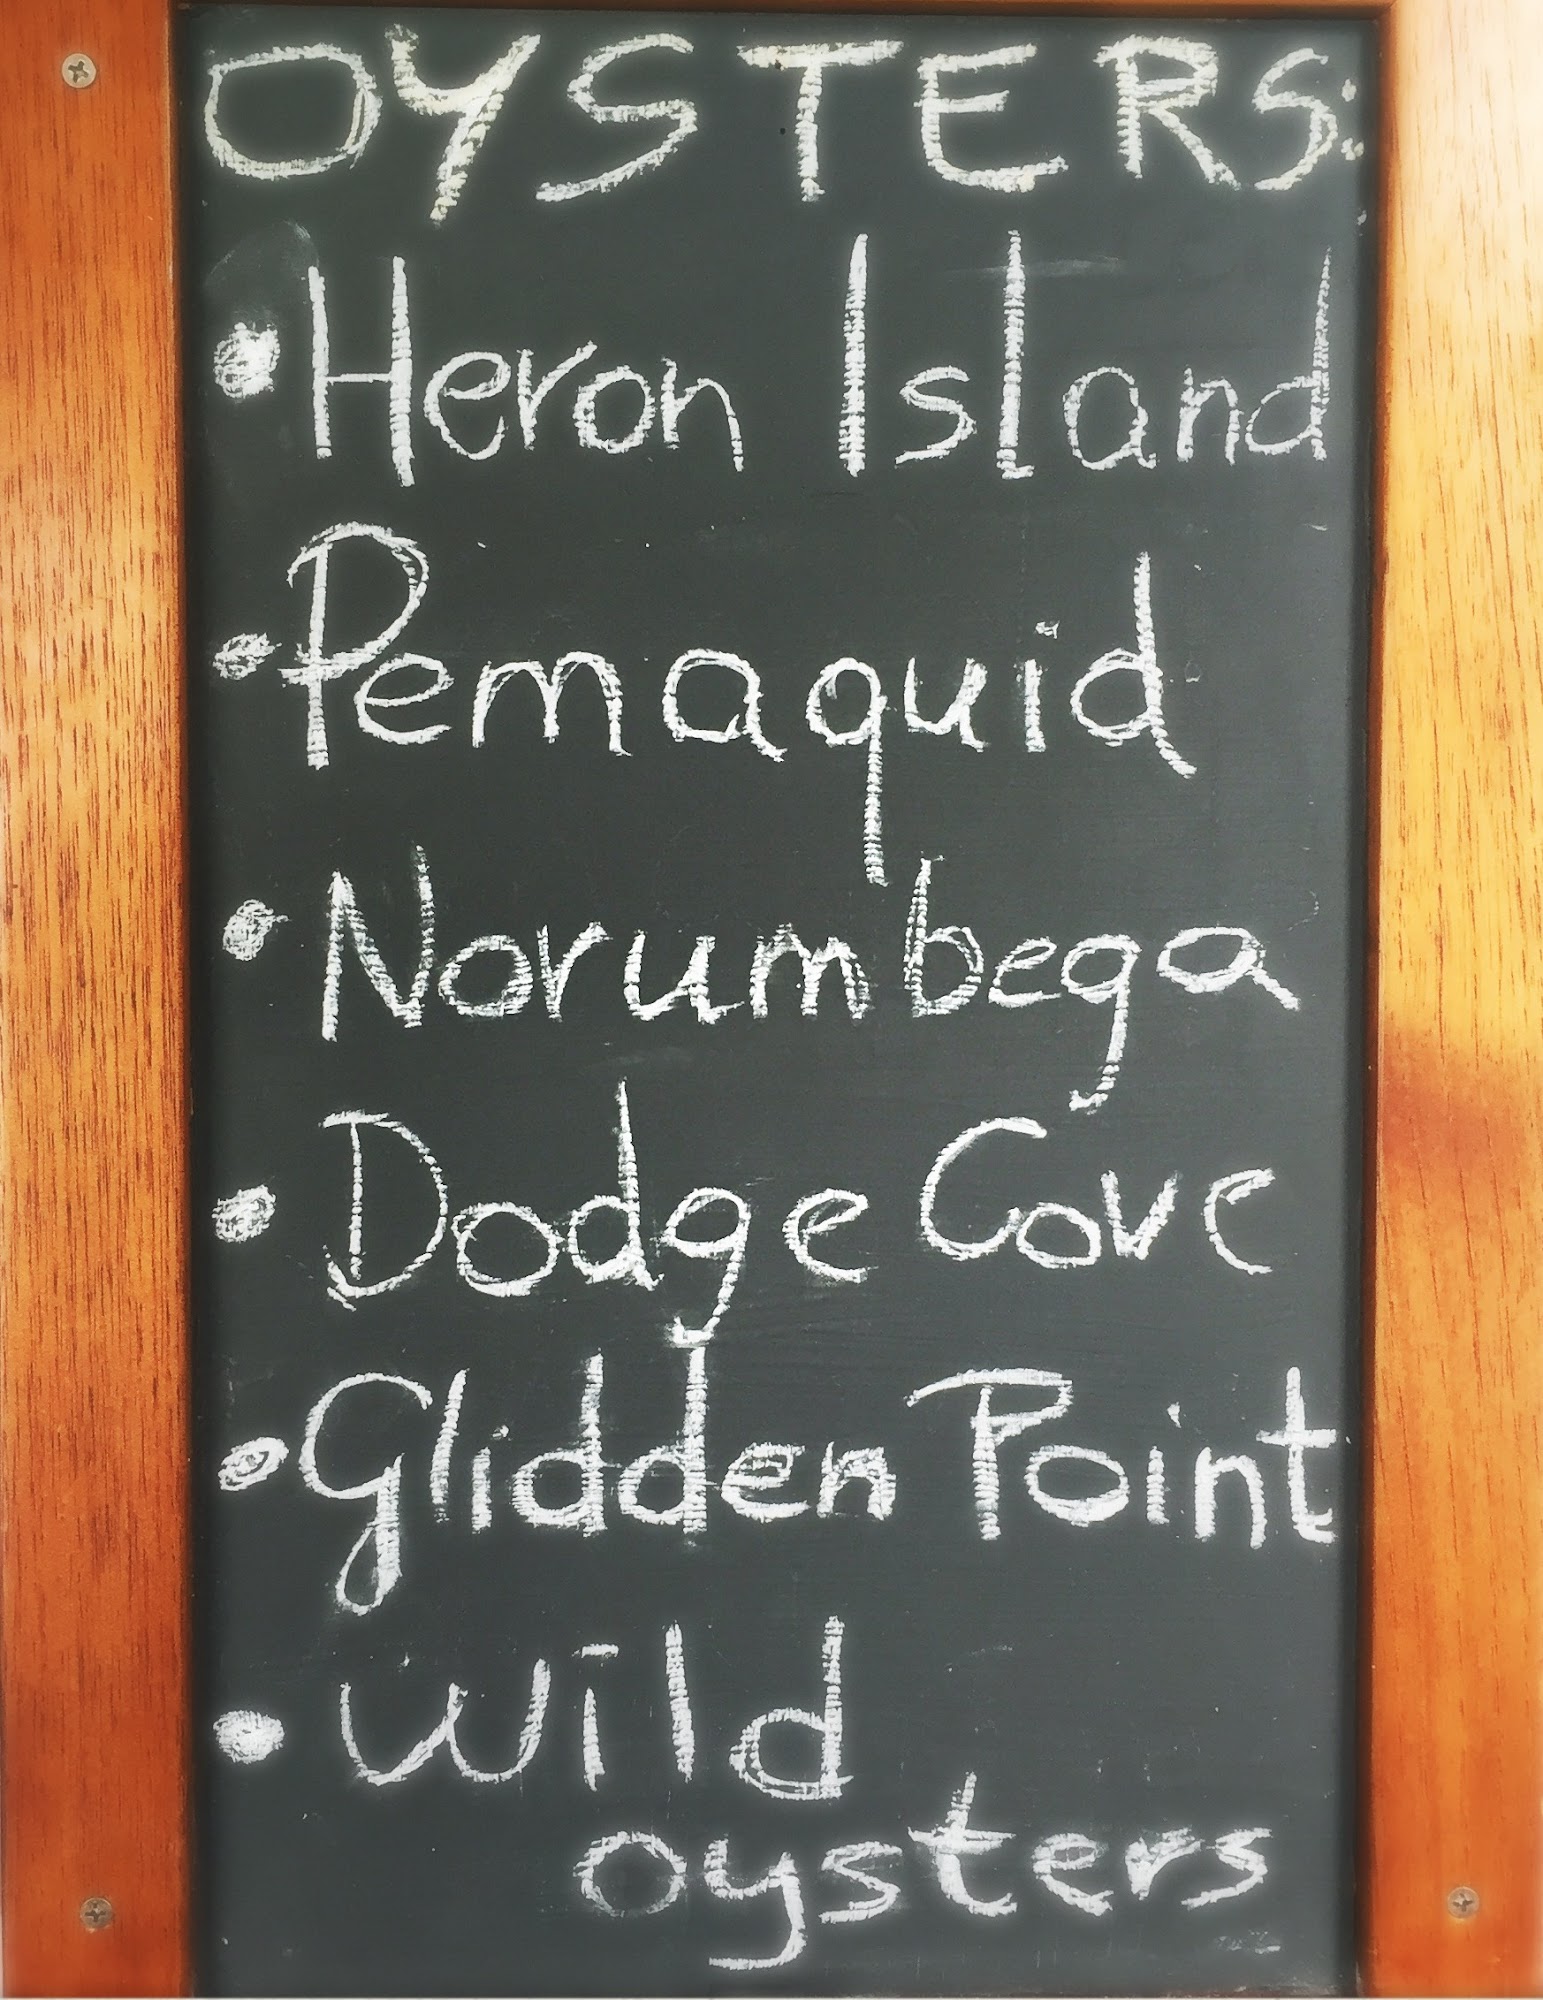 OYSTERS:
• Heron Island
• Pemaquid
• Norumbega
• Dodge Cove
• Glidden Point
• Wild
oysters